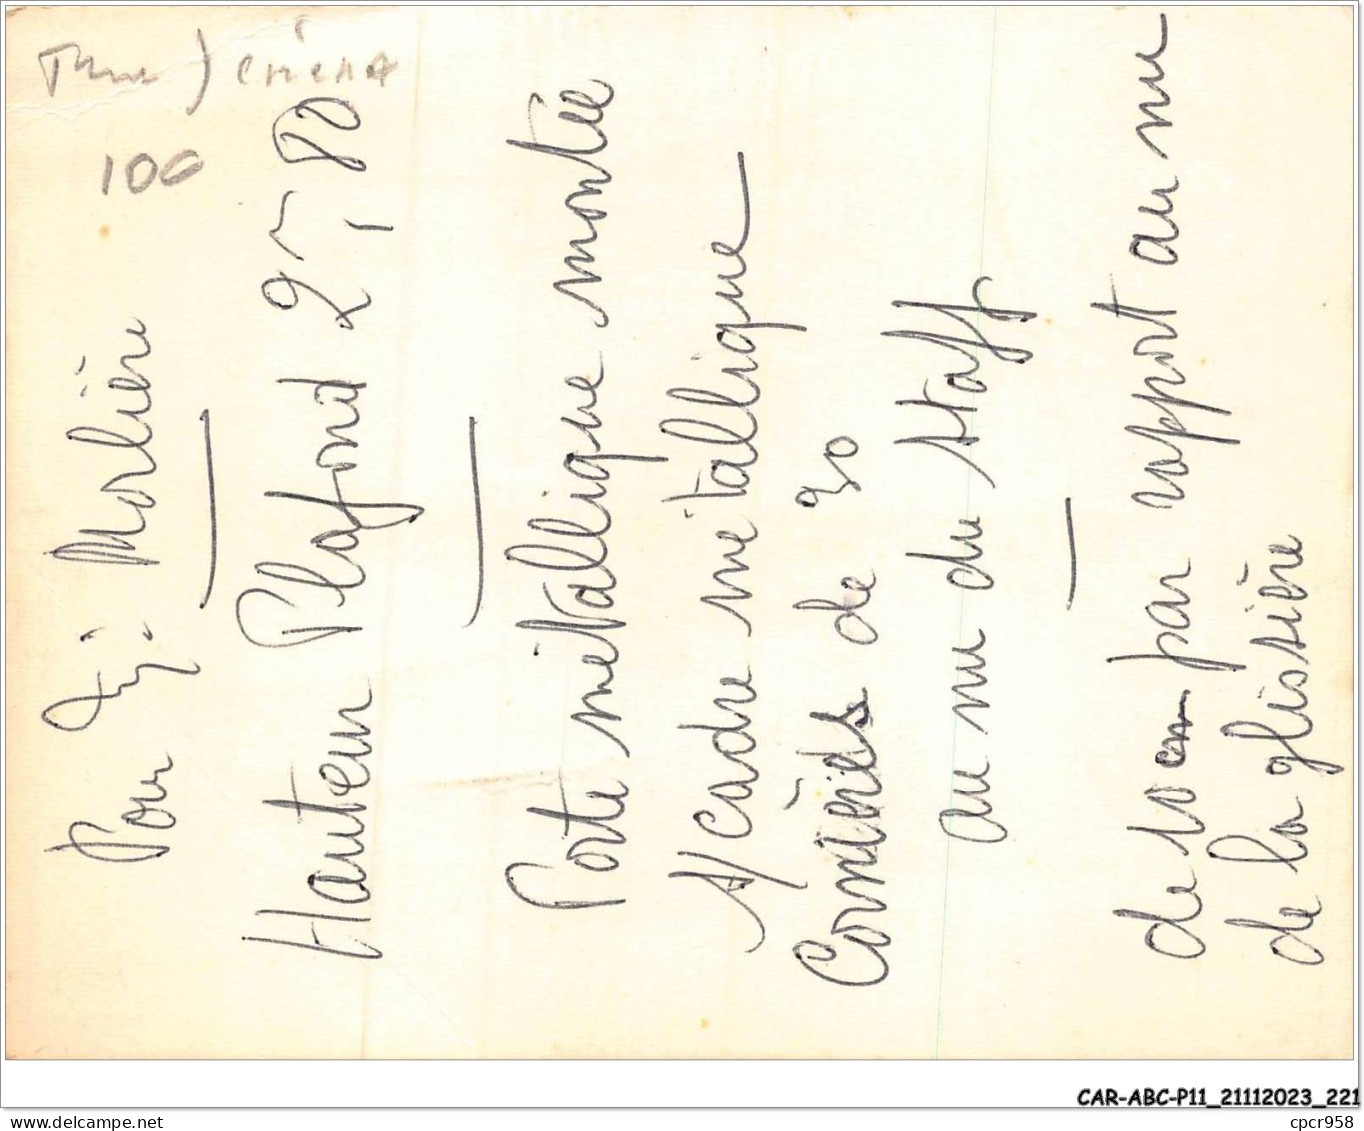 100
Pour Mr: Morlière
Hauteur Plafond 2m,80
Porte métallique montée
s/ cadre métallique
Cornières de 30
au nu du staff
de 10 cm par rapport au nu
de la glissière
CAR-ABC-P11_21112023_221
cpcr958